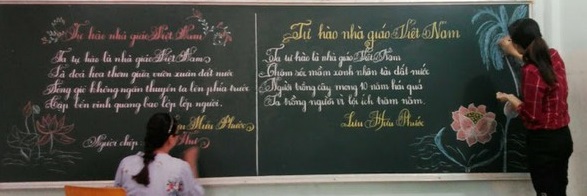 Tự hào nhà giáo Việt Nam
Ta tự hào là nhà giáo Việt Nam
Là đoá hoa thơm giữa vườn xuân đất nước
Sóng gió không ngăn thuyền ta lên phía trước
Cập bến vinh quang bao lớp lớp người.
Lưu Hữu Phước
Người chép
Tự hào nhà giáo Việt Nam
Ta tự hào là nhà giáo Việt Nam
Chăm sóc mầm xanh nhân tài đất nước
Người trồng cây mong 10 năm hái quả
Ta trồng người vì lợi ích trăm năm.
Lưu Hữu Phước